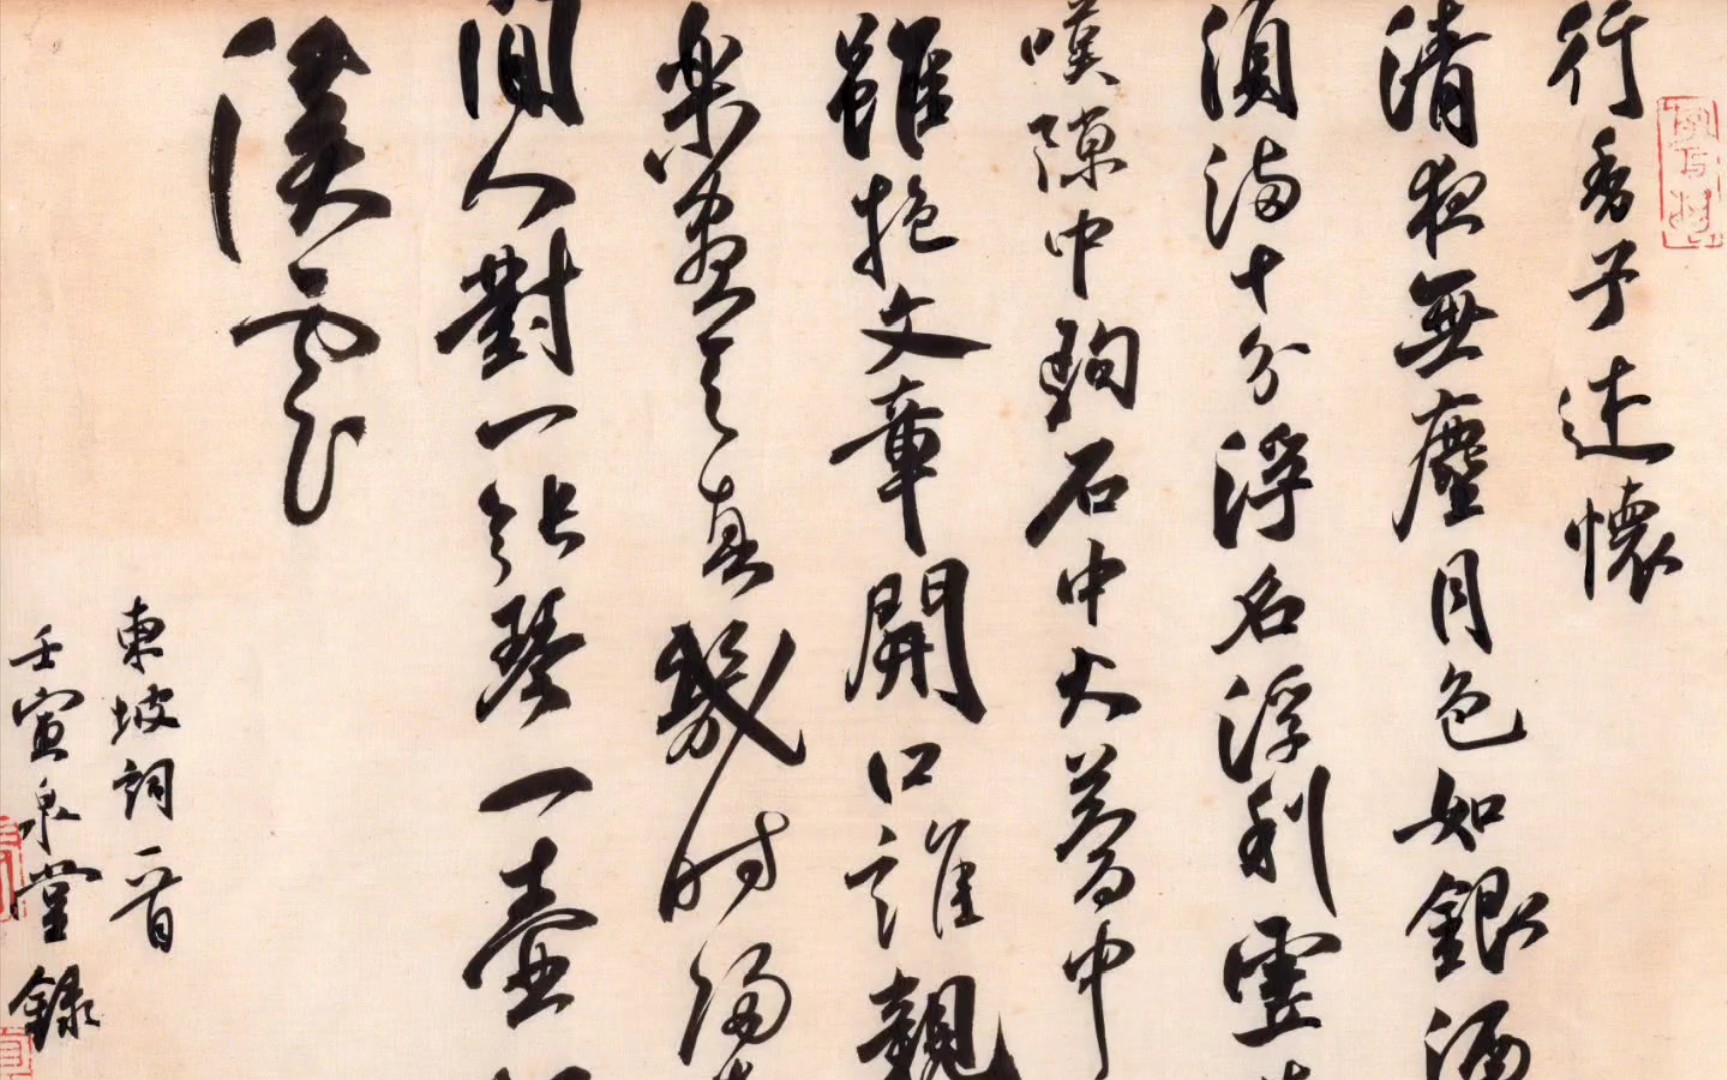 行香子述懷
清夜無塵月色如銀酒
須滿十分浮名浮利虛
嘆隙中駒石中火夢中
雖抱文章開口誰親
樂盡天真幾時歸
閒人對一張琴一壺
溪雲
東坡詞一首
壬寅泉堂錄